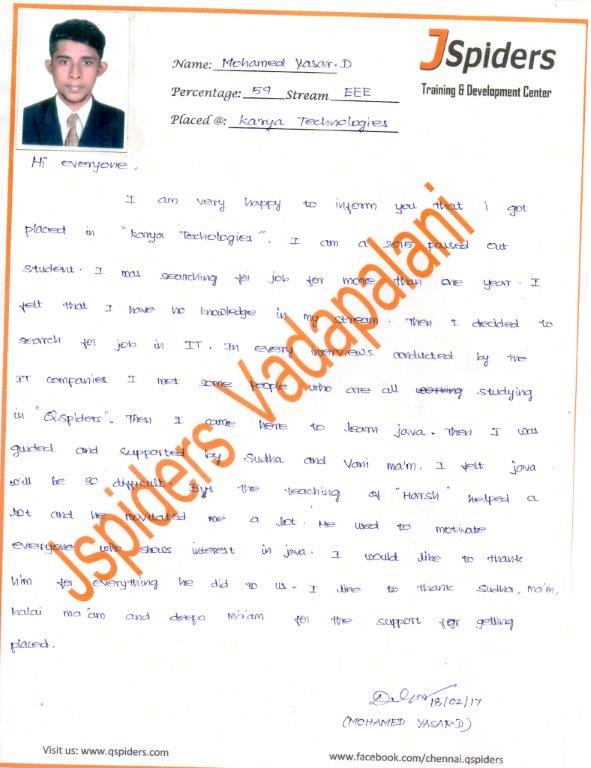 JSpiders
Training & Development Center
Name: Mohamed Yasar.D
Percentage: 59 Stream EEE
Placed @: Karya Technologies
Hi everyone,
I am very happy to inform you that i got
placed in "Karya Techologies". I am a 2015 passed out
student. I was searching for job for more than one year. I
felt that I have no knowledge in my stream. Then I decided to
search for job in IT. In every interviews conducted by the
IT companies I met some people who are all studying
in "Qspiders". Then I came here to learn java. Then I was
guided and supported by Sudha and Vani ma'm. I felt java
will be so difficult. But the teaching of "Harsh" helped a
lot and he movitated me a lot. He used to motivate
everyone who shows interest in java. I would like to thank
him for everything he did to us. I like to thank Sudha, ma'm,
kalai ma'am and deepa ma'am for the support for getting
placed.
Jspiders Vadapalani
18/02/17
(MOHAMED YASAR.D)
Visit us: www.qspiders.com
www.facebook.com/chennai.qspiders